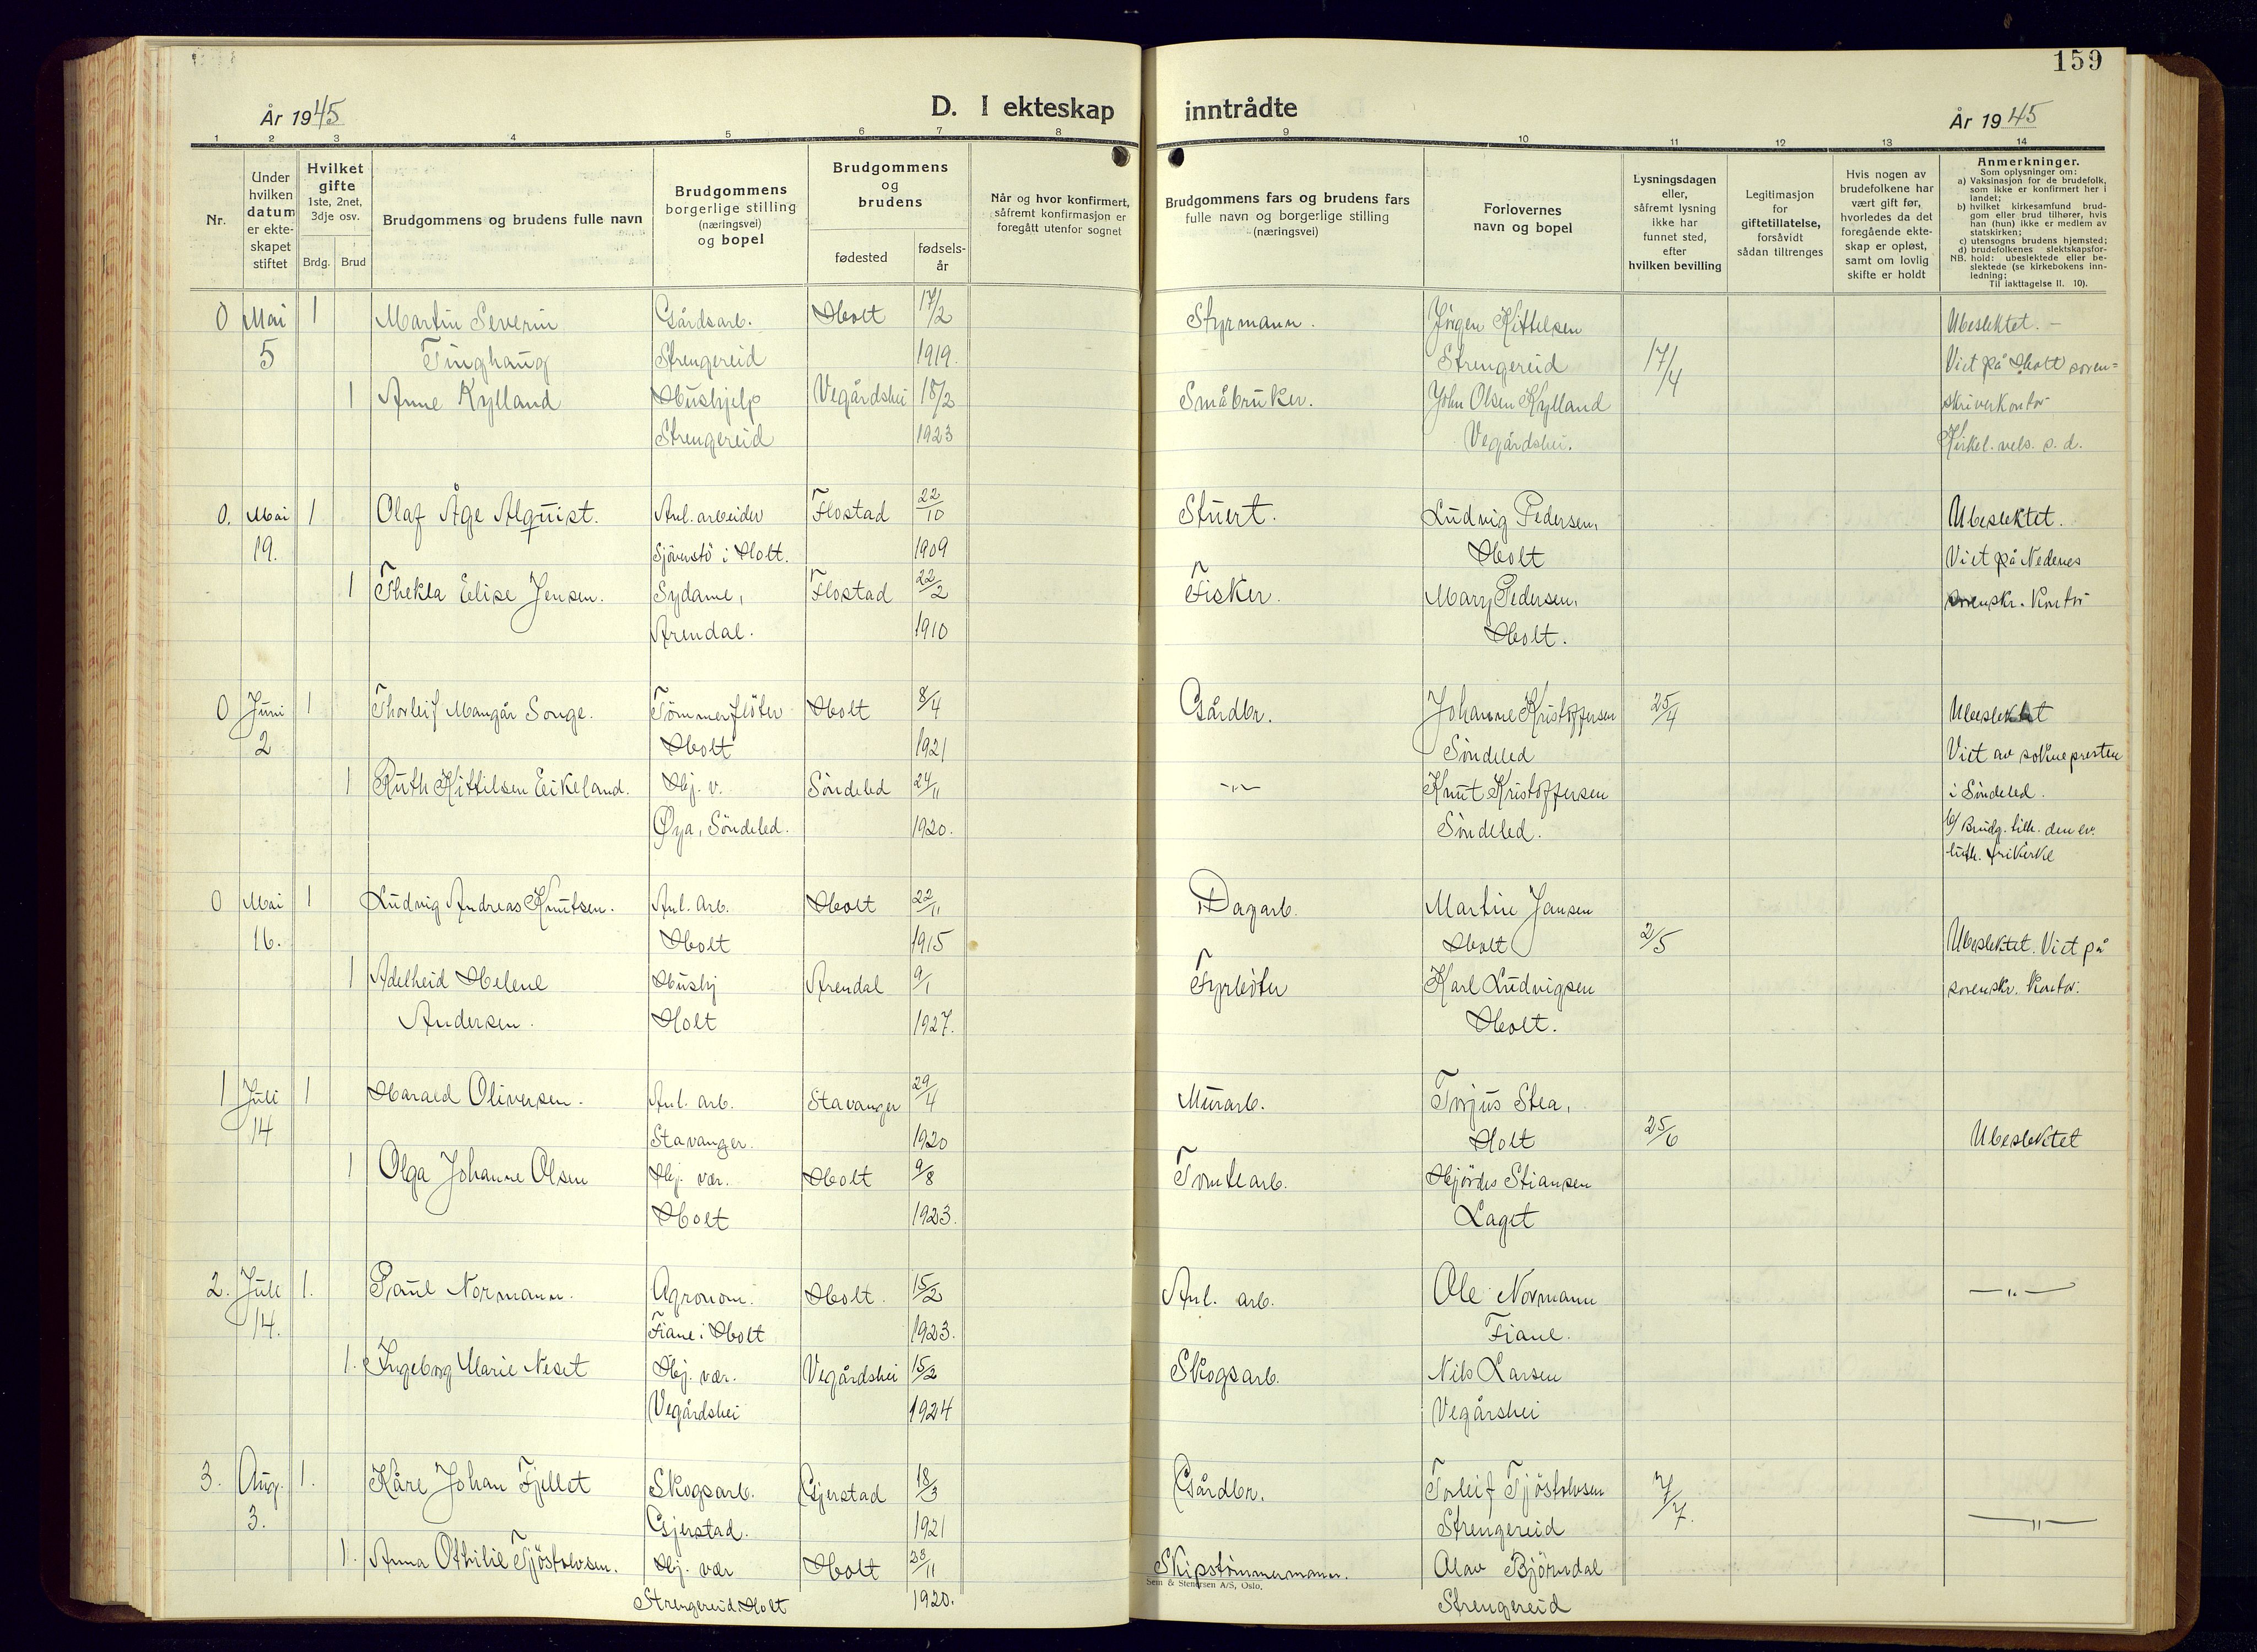 159
År 1945
D. I ekteskap inntrådte
År 1945
1 2 3 4 5 6 7 8 9 10 11 12 13 14
Nr.
Under hvilken datum er ekte-skapet stiftet
Hvilket gifte 1ste, 2net, 3dje osv.
Brdg. Brud
Brudgommens og brudens fulle navn
Brudgommens borgerlige stilling (næringsvei) og bopel
Brudgommens og brudens
fødested
fødsels-år
Når og hvor konfirmert, såfremt konfirmasjon er foregått utenfor sognet
Brudgommens fars og brudens fars fulle navn og borgerlige stilling (næringsvei)
Forlovernes navn og bopel
Lysningsdagen eller, såfremt lysning ikke har funnet sted, efter hvilken bevilling
Legitimasjon for giftetillatelse, forsåvidt sådan tiltrenges
Hvis nogen av brudefolkene har vært gift før, hvorledes da det foregående ekte-skap er opløst, samt om lovlig skifte er holdt
Anmerkninger.
Som oplysninger om:
a) Vaksinasjon for de brudefolk, som ikke er konfirmert her i landet;
b) hvilket kirkesamfund brud-gom eller brud tilhører, hvis han (hun) ikke er medlem av statskirken;
c) utensogns brudens hjemsted;
d) brudefolkenes slektskapsfor-hold: ubeslektede eller be-slektede (se kirkebokens inn-ledning;
NB. Til iakttagelse II. 10).
0 Mai 1 Martin Severin Gårdsarb. Holt 17/2 Styrmann. Jörgen Kittelsen Ubeslektet. –
5 Tinghaug Strengereid 1919. Strengereid 17/4 Viet på Holt soren=
1 Anne Kylland Hushjelp Vegårdshei 18/2 Småbruker. John Olsen Kylland skriverkontor
Strengereid 1923 Vegårdshei. Kirkel. vels. s. d.
0. Mai 1 Olaf Åge Alquist. Anl. arbeider Flostad 22/10 Stuert. Ludvig Pedersen, Ubeslektet.
19. Sjöverstö i Holt. 1909 Holt Viet på Nedenes
1 Thekla Elise Jensen. Sydame, Flostad 22/2 Fisker. Mary Pedersen, sorenskr. kontor
Arendal. 1910 Holt.
0 Juni 1 Thorleif Mangår Songe. Tömmerflöter Holt 8/4 Gårdbr. Johanne Kristoffersen 25/4 Ubeslektet
2 Holt 1921 Söndeled Viet av soknepresten
1 Ruth Kittilsen Eikeland. Hj. v. Söndeled 24/11 –"– Knut Kristoffersen i Söndeled.
Øya, Söndeled. 1920. Söndeled. b/ Brudg. tilh. den ev.
luth. frikirke
0 Mai 1 Ludvig Andreas Knutsen. Anl. arb. Holt 22/11 Dagarb. Martin Jansen
16. Holt 1915 Holt 2/5 Ubeslektet. Viet på
1 Adelheid Helene Hushj Arendal 9/1 Fyrböter Karl Ludvigsen sorenskr. kontor.
Andersen. Holt 1927. Holt.
1 Juli 1 Harald Oliversen. Anl. arb. Stavanger 29/4 Murarb. Torjus Stea,
14 Stavanger. 1920 Holt 25/6 Ubeslektet
1 Olga Johanne Olsen Hj. vær. Holt 9/8 Tomtearb. Hjördis Stiansen
Holt 1923. Laget
2. Juli 1. Paul Normann. Agronom. Holt. 15/2 Anl. arb. Ole Normann –"–
14. Fiane i Holt 1923. Fiane.
1. Ingeborg Marie Neset Hj. vær. Vegårdshei 15/2 Skogsarb. Nils Larsen
Vegårdshei 1924 Vegårshei
3. Aug. 1. Kåre Johan Fjellet Skogsarb. Gjerstad 18/3 Gårdbr. Torleif Tjöstolvsen 7/7.
3. Gjerstad. 1921 Strengereid –"–
1. Anna Othilie Tjöstolvsen. Hj. vær Holt 23/11 Skipstömmermann. Olav Björndal
Sem & Stenersen A/S, Oslo.
Strengereid. Holt 1920. Strengereid